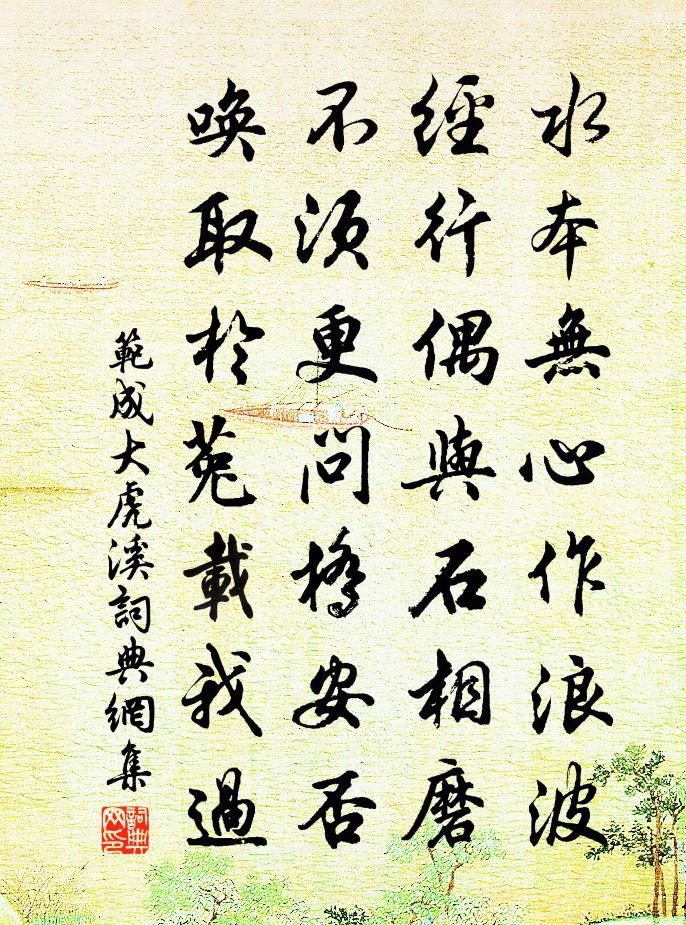 水本無心作浪波
經行偶與石相磨
不須更問橋安否
喚取於菟載我過
範成大虎溪詞典網集
詞典網印